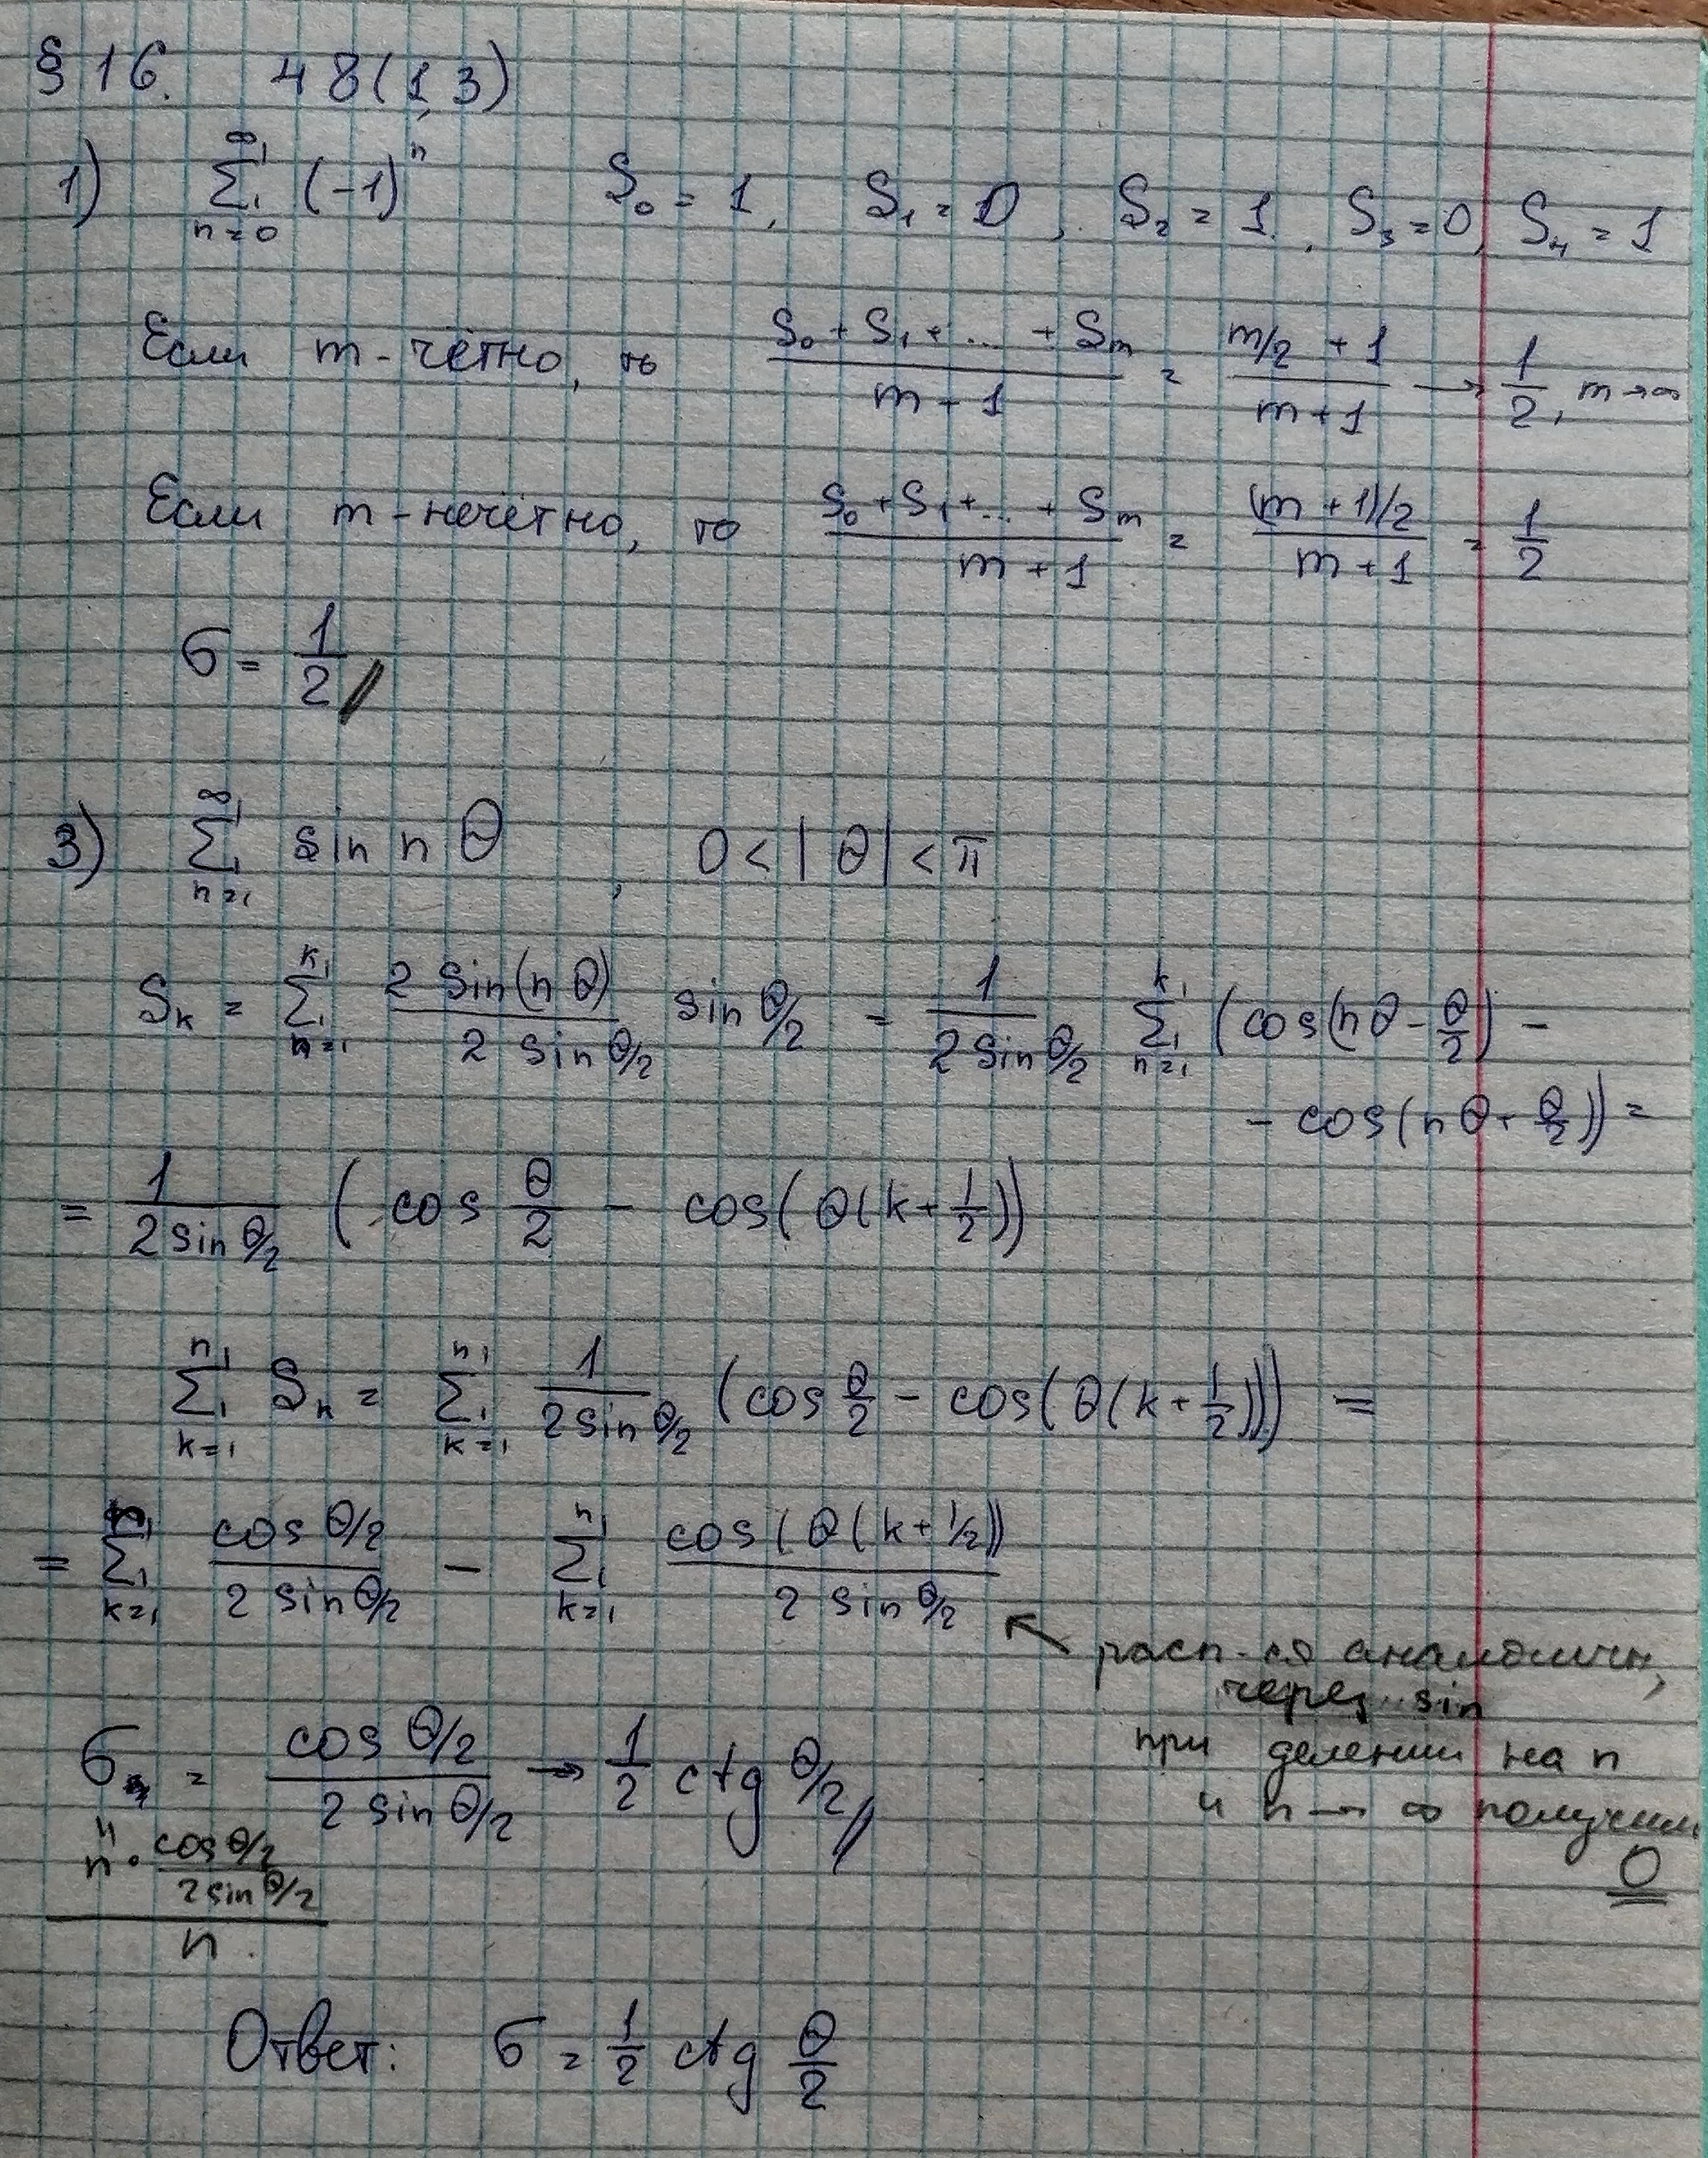 § 16. 48(1,3)
1) ∑_{n=0}^{∞} (-1)^n S₀ = 1, S₁ = 0, S₂ = 1, S₃ = 0, S₄ = 1
Если m - чётно, то (S₀ + S₁ + ... + Sₘ)/(m + 1) = (m/2 + 1)/(m + 1) → 1/2, m → ∞
Если m - нечётно, то (S₀ + S₁ + ... + Sₘ)/(m + 1) = ((m + 1)/2)/(m + 1) = 1/2
σ = 1/2
3) ∑_{n=1}^{∞} sin n θ, 0 < |θ| < π
Sₖ = ∑_{n=1}^{k} (2 sin(n θ))/(2 sin θ/2) sin θ/2 = 1/(2 sin θ/2) ∑_{n=1}^{k} (cos(nθ - θ/2) -
- cos(nθ + θ/2)) =
= 1/(2 sin θ/2) (cos θ/2 - cos(θ(k + 1/2))
∑_{k=1}^{n} Sₖ = ∑_{k=1}^{n} 1/(2 sin θ/2) (cos θ/2 - cos(θ(k + 1/2))) =
= ∑_{k=1}^{n} (cos θ/2)/(2 sin θ/2) - ∑_{k=1}^{n} (cos(θ(k + 1/2))/(2 sin θ/2)
↖ расп-ся аналогичн,
через sin
при делении на n
и n → ∞ получим
0
σ = (cos θ/2)/(2 sin θ/2) → 1/2 ctg θ/2
"
(n · (cos θ/2)/(2 sin θ/2))/n
Ответ: σ = 1/2 ctg θ/2